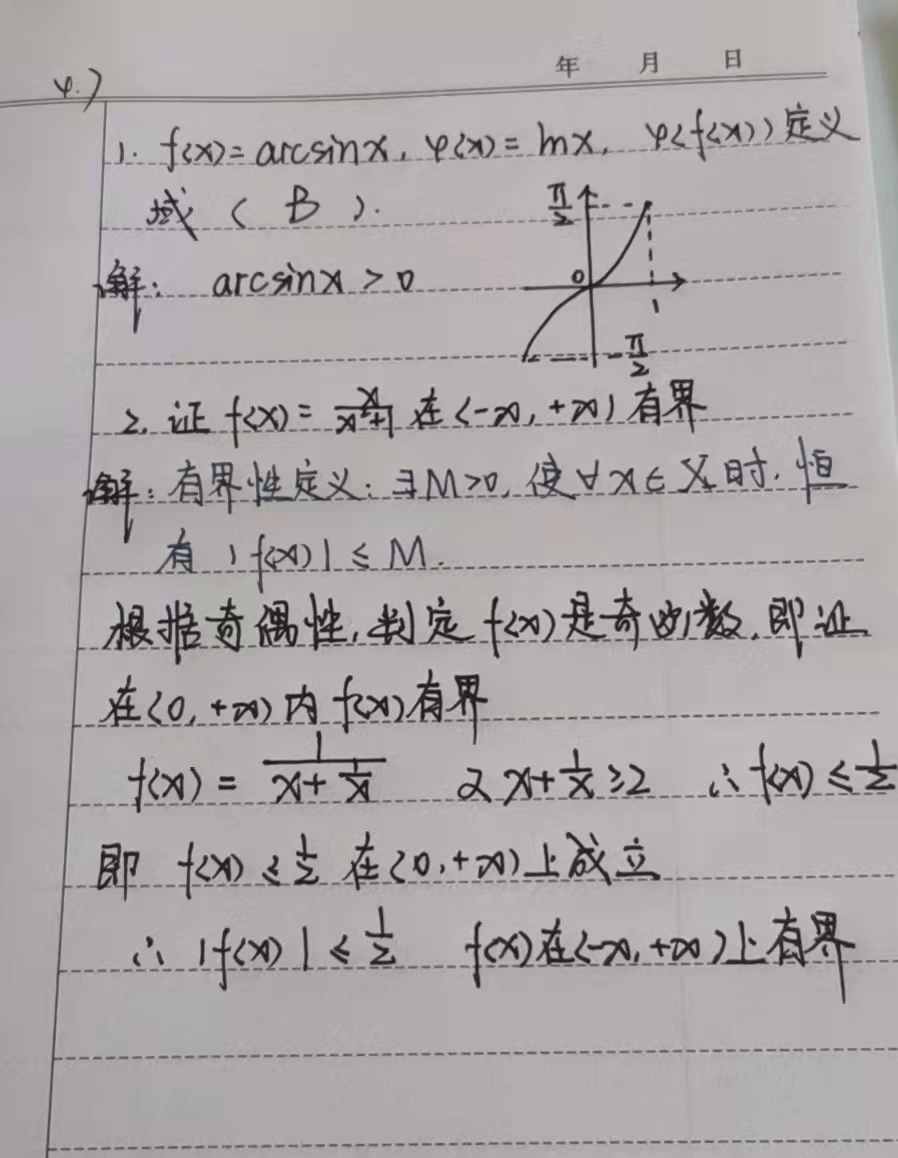 年 月 日
4.7
1. f(x)=arcsinx, φ(x)=lnx, φ(f(x))定义
域 ( B ).
解: arcsinx>0
π/2
0
1
-π/2
2. 证 f(x)= x/(x²+1) 在(-∞,+∞)有界
解: 有界性定义: ∃M>0, 使∀x∈X时, 恒
有 |f(x)|≤M.
根据奇偶性, 判定f(x)是奇函数, 即证
在(0,+∞)内f(x)有界
f(x)= 1/(x+1/x) 又x+1/x≥2 ∴f(x)≤1/2
即 f(x)≤1/2 在(0,+∞)上成立
∴ |f(x)|≤1/2 f(x)在(-∞,+∞)上有界